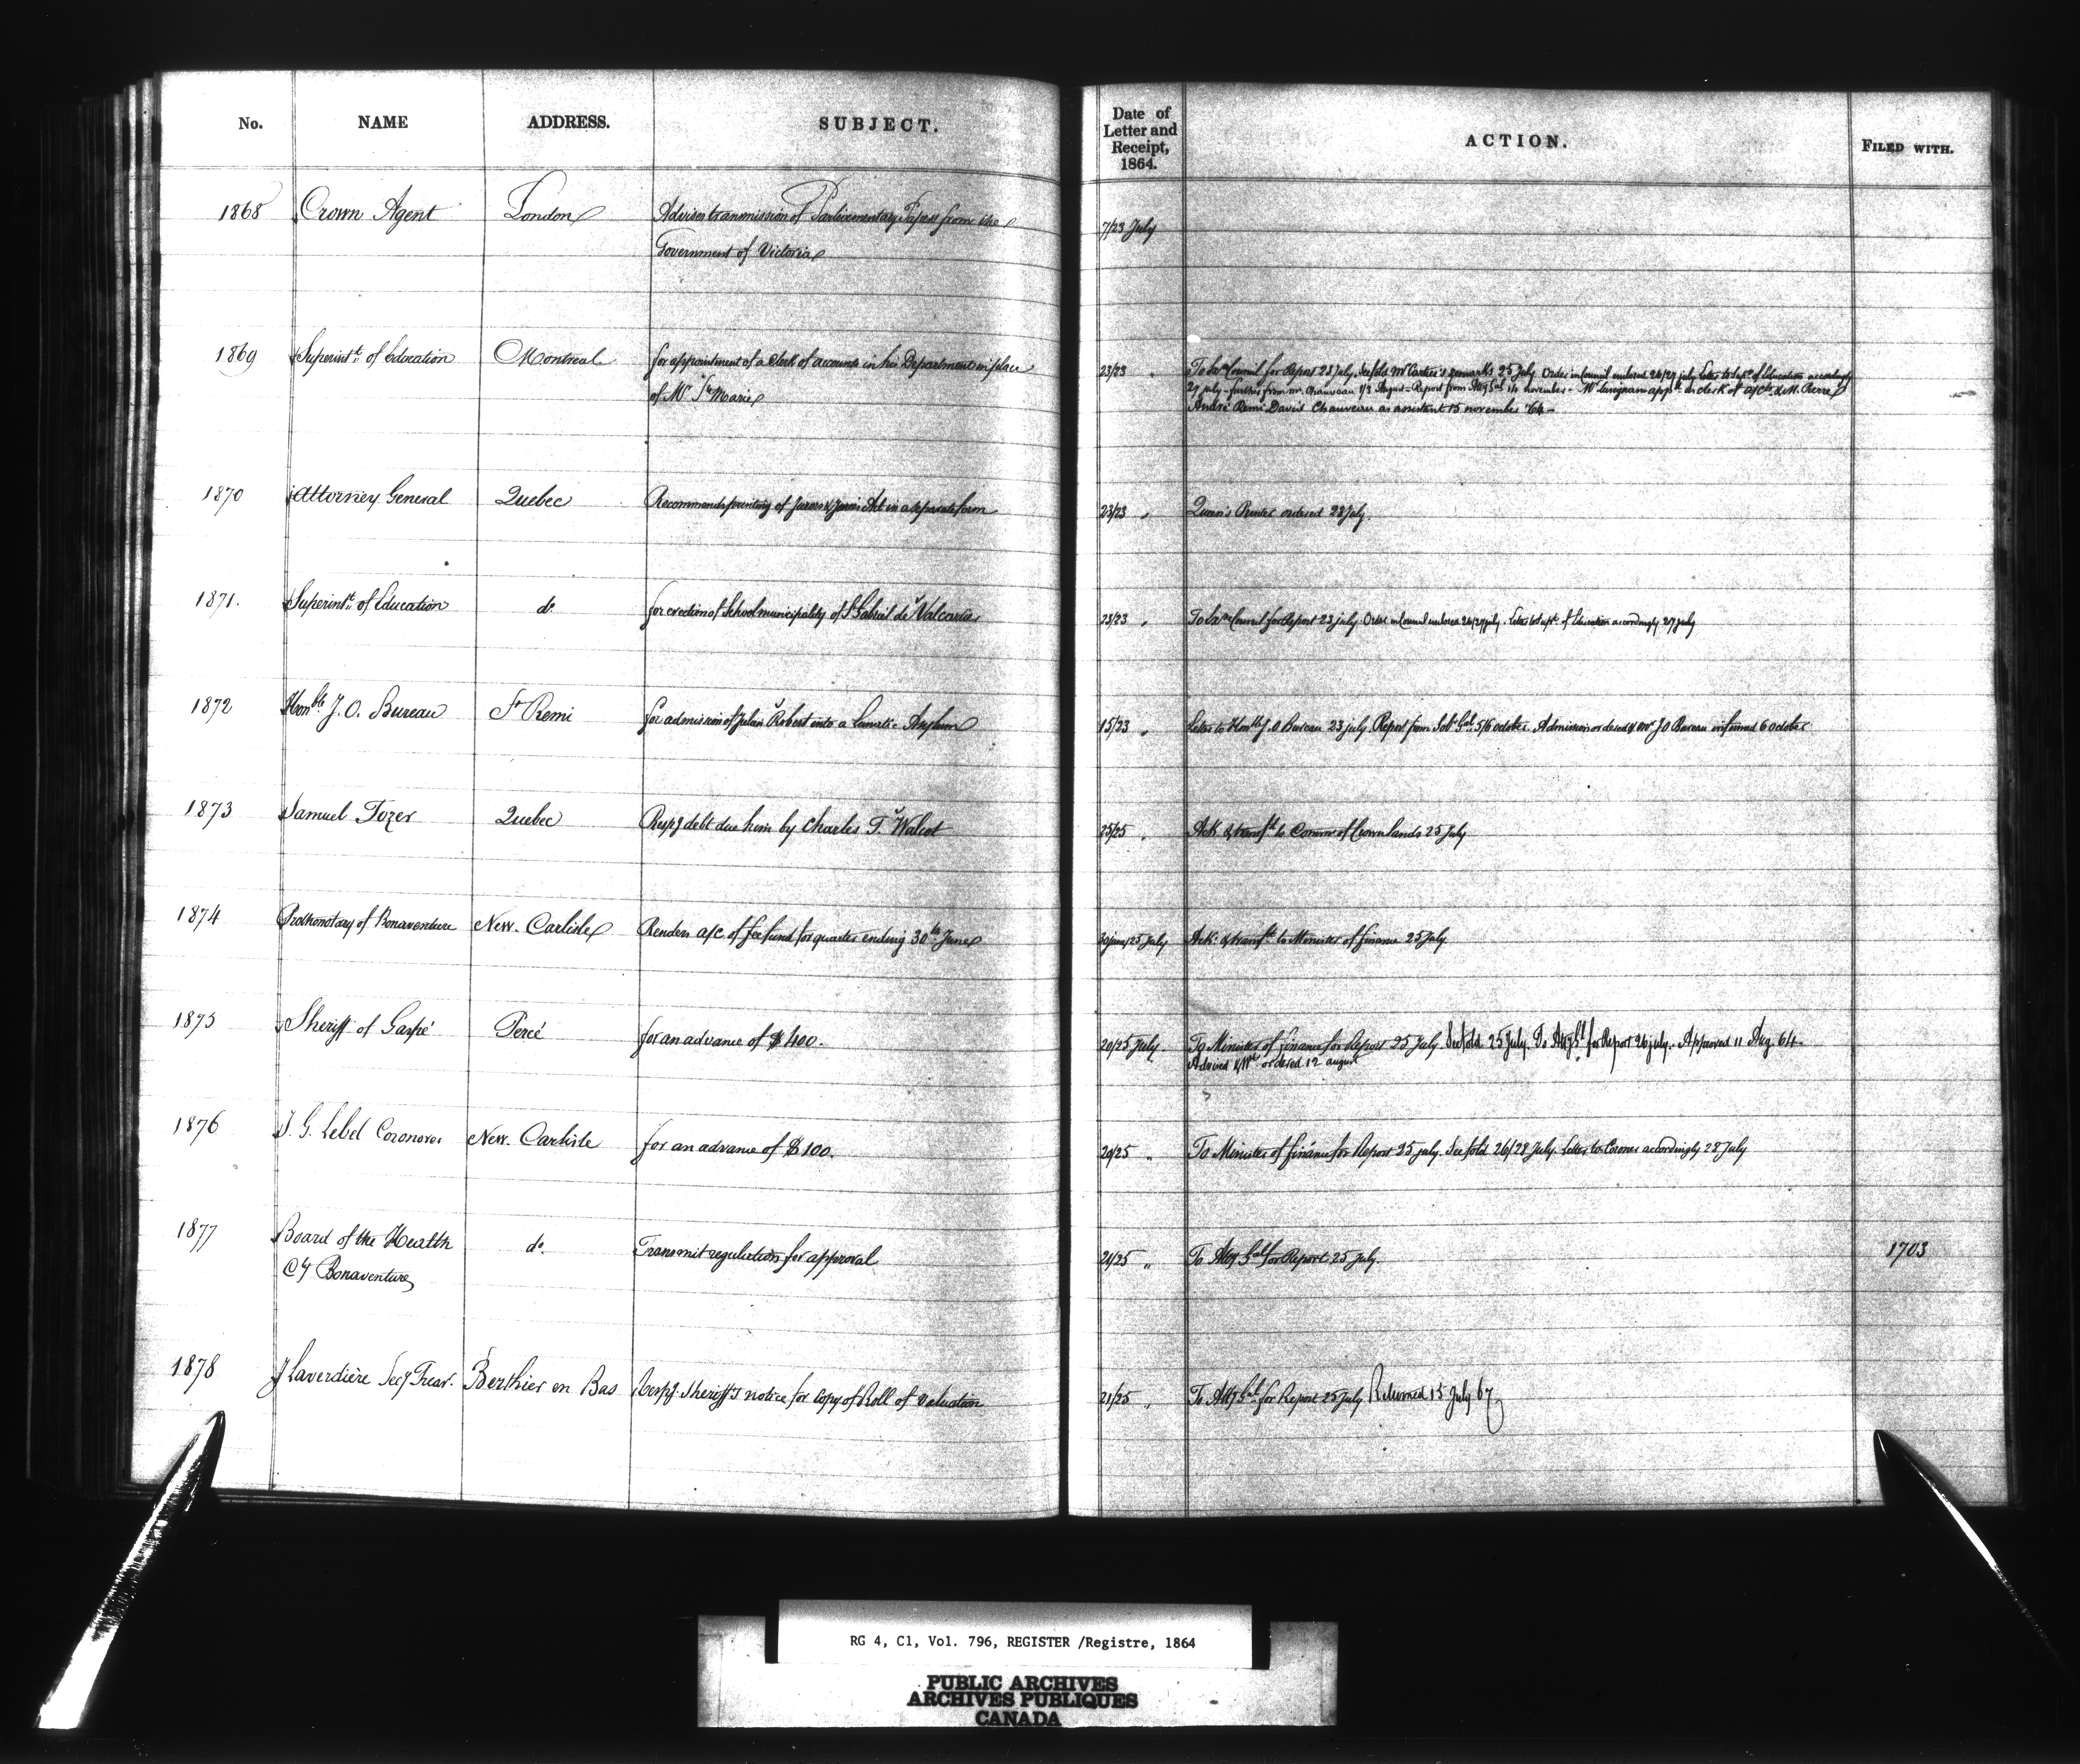 No. NAME ADDRESS. SUBJECT. Date of Letter and Receipt, 1864. ACTION. FILED WITH.
1868 Crown Agent London Advises transmission of Parliamentary Papers from the 7/23 July
Government of Victoria
1869 Superintt. of Education Montreal for appointment of a Clerk of accounts in his Department in place 23/23 " To Exve Council for Report 23 July, See fold Mr Cartier's remarks 25 July. Order in Council endorsed 26/27 July. Letter to Supt. of Education accordingly
of Mr Ste Marie 27 July - further from Mr. Chauveau 1/3 August - Report from Atty Gal 14 november - Mr Lusignan appd. as clerk of a/cts & M. Pierre
André Remi Davis Chauveau as assistant 15 november '64 -
1870 Attorney General Quebec Recommends printing of Jurors & Juries Act in a separate form 23/23 " Queen's Printer ordered 23 July.
1871. Superintt. of Education do. for erection of School municipality of St Gabriel de Valcartier 23/23 " To Exve Council for Report 23 July. Order in Council endorsed 26/27 July. Letter to Supt. of Education accordingly 27 July
1872 Honble. J. O. Bureau St Remi for admission of Julien Robert into a Lunatic Asylum 15/23 " Letter to Honble J. O Bureau 23 July. Report from Solr Gal. 5/6 october. Admission ordered & Mr J O Bureau informed 6 october
1873 Samuel Tozer Quebec Respg debt due him by Charles T. Walcot 25/25 " Ack. & transfd to Commr of Crown lands 25 July
1874 Prothonotary of Bonaventure New. Carlisle Renders a/c of fee fund for quarter ending 30th June 30 june/25 July Ack. & transfd. to Minister of Finance 25 July
1875 Sheriff of Gaspé Percé for an advance of $400. 20/25 July To Minister of Finance for Report 25 July See fold 25 July. To Atty Gl for Report 26 July. Approved 11 Aug. 64.
Advised & Wt ordered 12 august
1876 J. G. Lebel Coronor New. Carlisle for an advance of $100. 20/25 " To Minister of Finance for Report 25 July. See fold 26/28 July. Letter to Coroner accordingly 28 July
1877 Board of the Health do. Transmit regulations for approval 21/25 " To Atty Gal for Report 25 July. 1703
Cy Bonaventure
1878 J Laverdière Secy Trear. Berthier en Bas Respg. Sheriff's notice for copy of Roll of Valuation 21/25 " To Atty Gal. for Report 25 July Returned 15 July 67
RG 4, C1, Vol. 796, REGISTER /Registre, 1864
PUBLIC ARCHIVES
ARCHIVES PUBLIQUES
CANADA